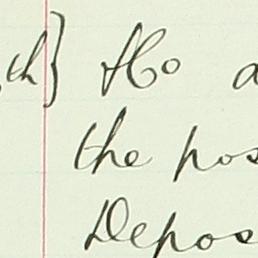 ch} Ho a
the pos
Depos